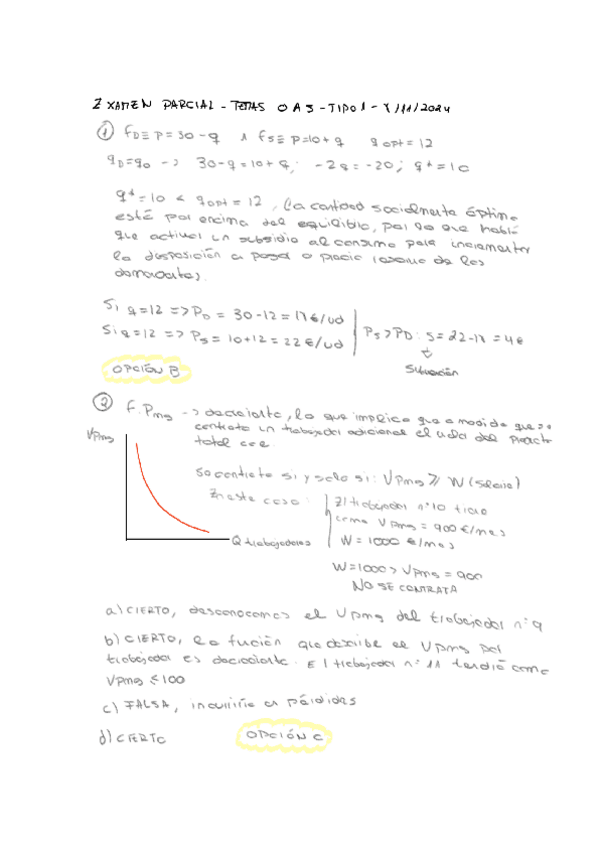 EXAMEN PARCIAL - TEMAS 0 A 3 - TIPO 1 - X/11/2024
① fD≡ p=30-q ∧ fS≡ p=10+q qOPT=12
qD=qO -> 30-q=10+q; -2q=-20; q*=10
q*=10 < qOPT=12, La cantidad socialmente óptima
está por encima del equilibrio, por lo que habrá
que activar un subsidio al consumo para incrementar
la disposición a pagar o precio máximo de los
demandantes.
Si q=12 => PD = 30-12=18€/ud
Si q=12 => PS = 10+12=22€/ud
PS>PD: S=22-18=4€
OPCIÓN B
② F. Pmg -> decreciente, lo que implica que a medida que se
contrata un trabajador adicional el valor del producto
total cae.
VPmg
Q trabajadores
Se contrata si y solo si: VPmg ≥ W (salario)
En este caso:
El trabajador nº10 tiene
como VPmg = 900 €/mes
W = 1000 €/mes
W=1000 > VPmg = 900
NO SE CONTRATA
a) CIERTO, desconocemos el VPmg del trabajador nº9
b) CIERTO, la función que describe el VPmg por
trabajador es decreciente. El trabajador nº 11 tendrá como
VPmg ≤100
c) FALSA, incurriría en pérdidas
d) CIERTO
OPCIÓN C